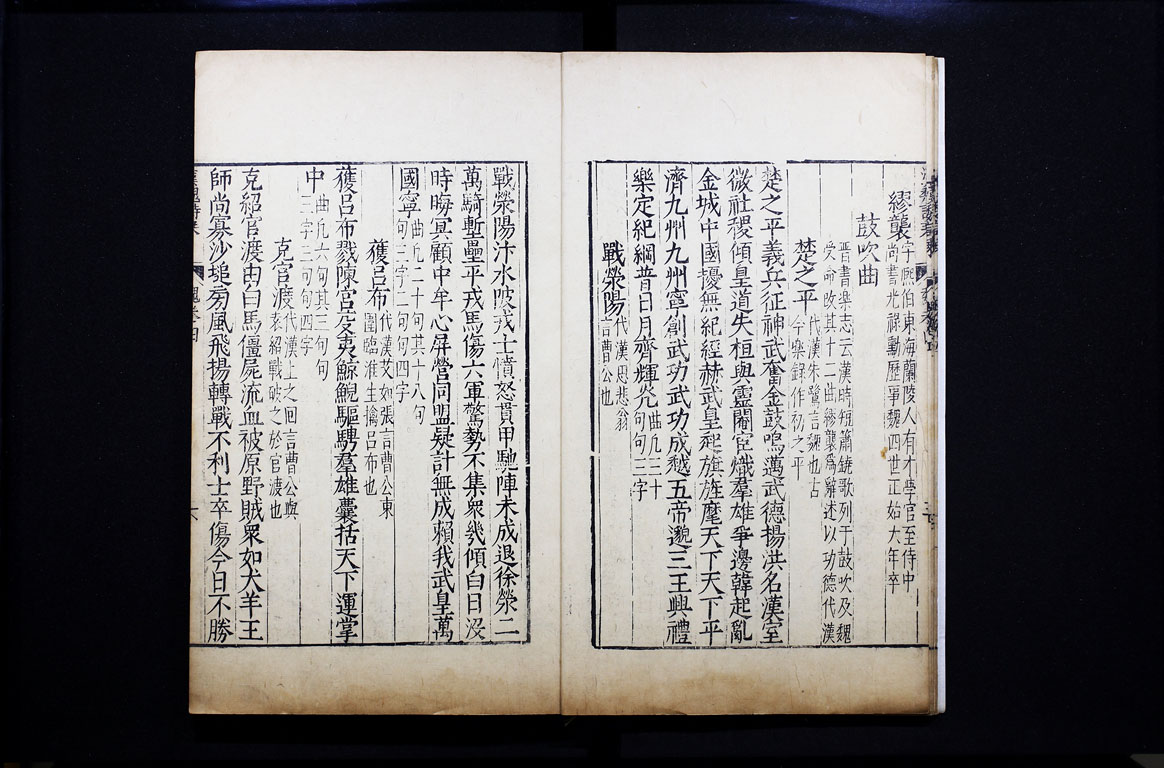 繆襲字熈伯東海蘭陵人有才學官至侍中
尚書光祿勳歷事魏四世正始六年卒
鼓吹曲
晋書樂志云漢時短簫鐃歌列于鼓吹及魏
受命改其十二曲繆襲爲辭述以功德代漢
楚之平代漢朱鷺言魏也古
今樂錄作初之平
楚之平義兵征神武奮金鼓鳴邁武德揚洪名漢室
微社稷傾皇道失桓與靈閹宦熾羣雄爭邊韓起亂
金城中國擾無紀經赫武皇起旗旌麾天下天下平
濟九州九州寧創武功武功成越五帝邈三王興禮
樂定紀綱普日月齊輝光曲凢三十
句句三字
戰滎陽代漢思悲翁
言曹公也
戰滎陽汴水陂戎士憤怒貫甲馳陣未成退徐滎二
萬騎塹壘平戎馬傷六軍驚勢不集衆幾傾白日沒
時晦冥顧中牟心屏營同盟疑計無成賴我武皇萬
國寧曲凢二十句其十八句
句三字二句句四字
獲呂布代漢艾如張言曹公東
圍臨淮生擒呂布也
獲呂布戮陳宮芟夷鯨鯢驅騁羣雄囊括天下運掌
中曲凢六句其三句句
三字三句句四字
克官渡代漢上之回言曹公與
袁紹戰破之於官渡也
克紹官渡由白馬僵屍流血被原野賊衆如犬羊王
師尚寡沙塠旁風飛揚轉戰不利士卒傷今日不勝